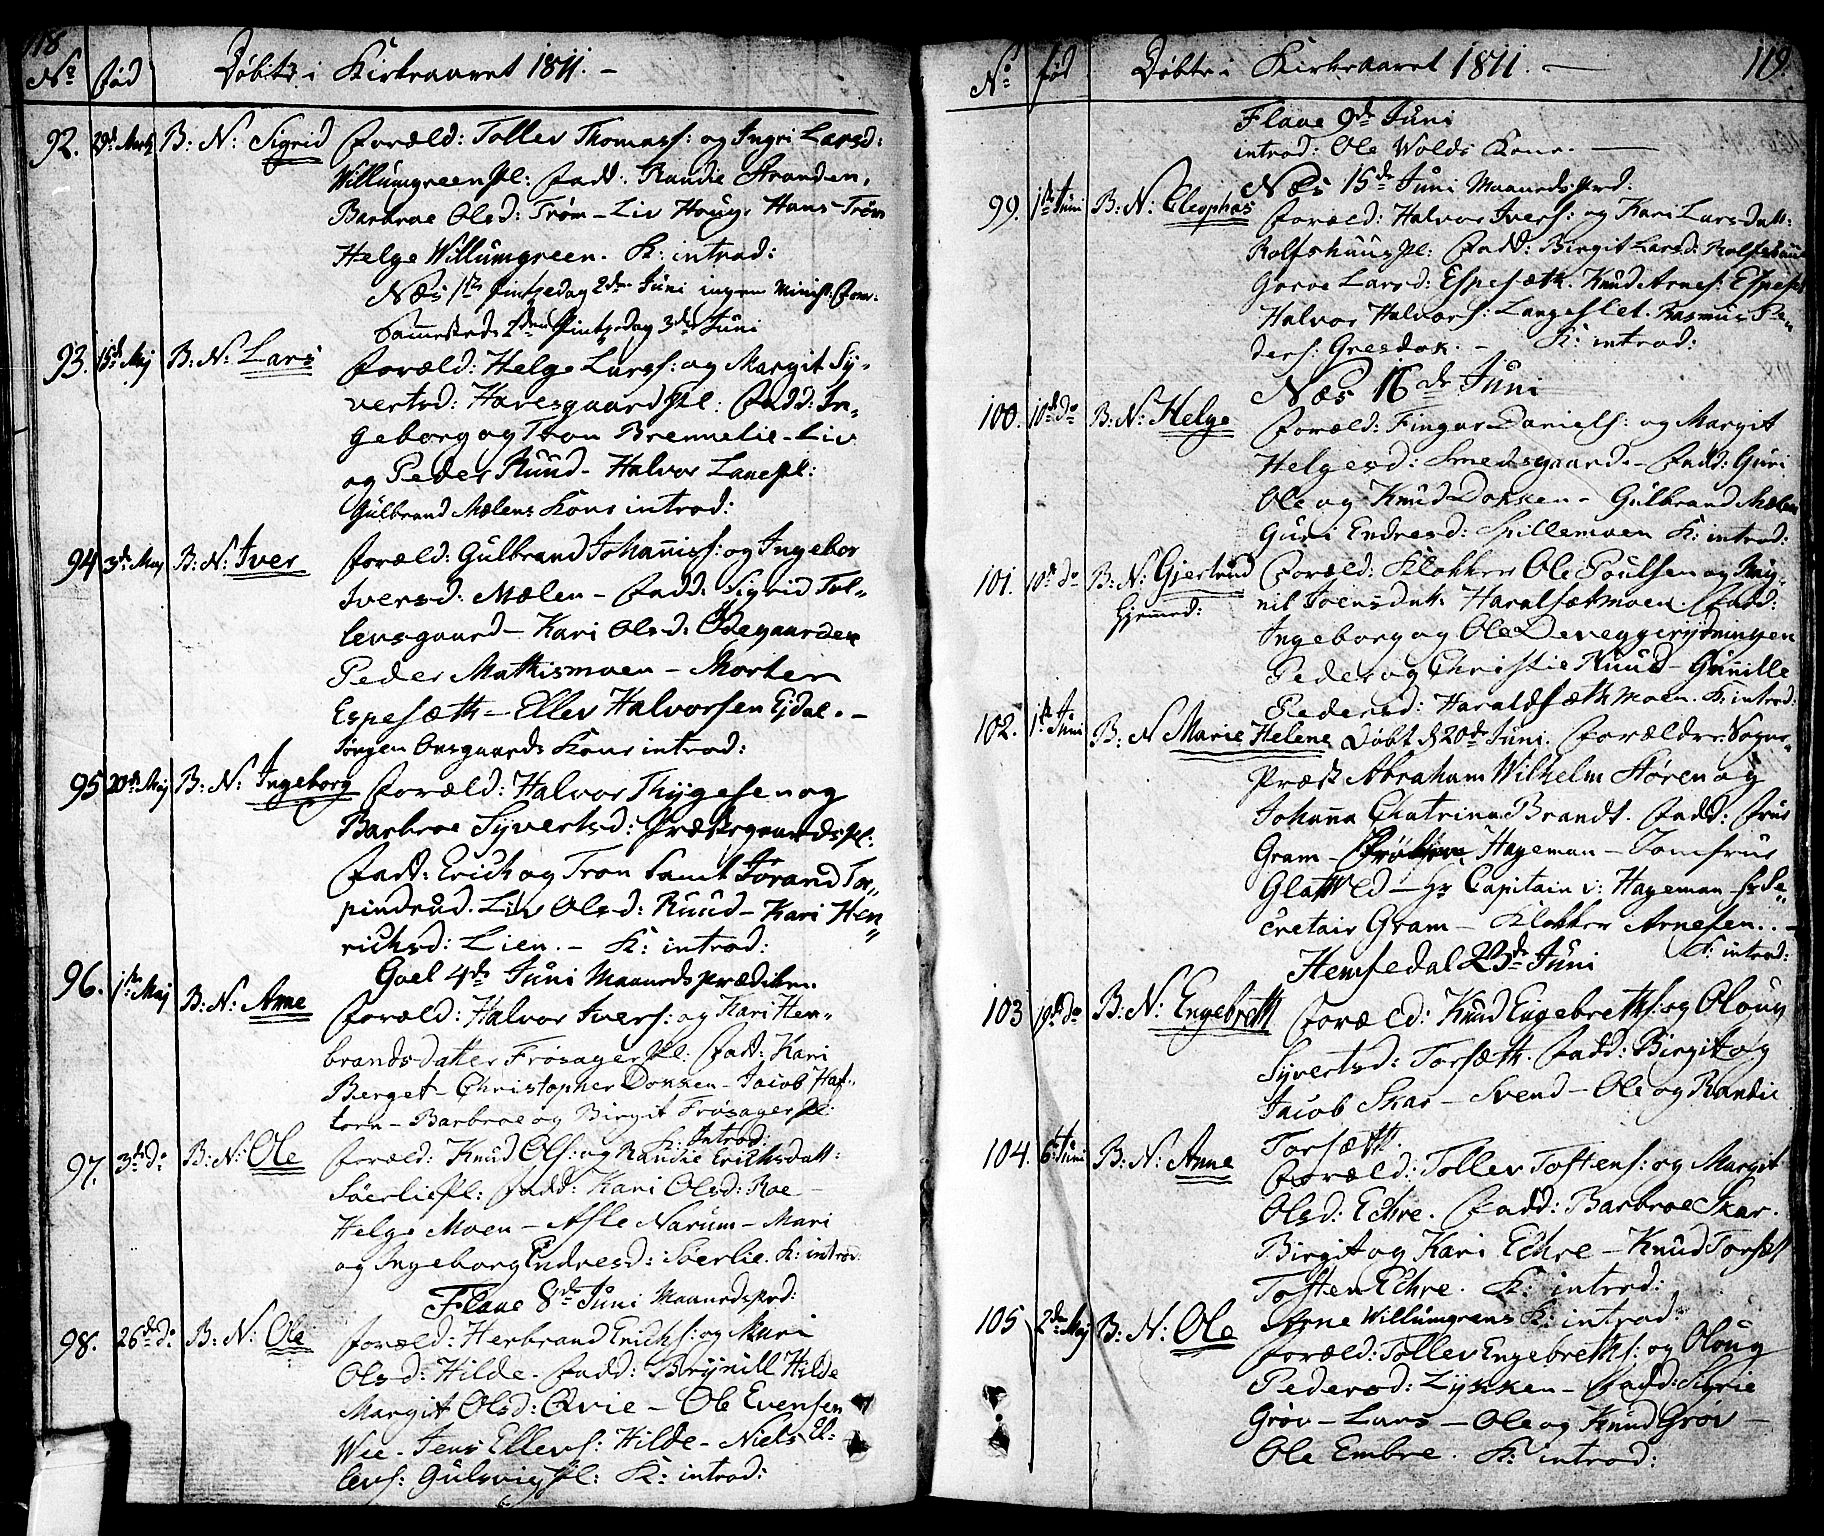 118
No fød Døbte i Kirkeaaret 1811. -
92. 29de Marts B: N: Sigrid Foræld: Tollev Thomass: og Ingri Larsd:
Willumgreen Pl: Fadd: Randie Stranden,
Barbroe Olsd: Trøm - Liv Houg, Hans Trøm
Helge Willumgreen. K: introd:
Næs 1ste Pintsedag 2den Juni ingen Minist: From:
Sammesteds 2den Pintsedag 3die Juni
93. 15de Maj B: N: Lars Foræld: Helge Larss: og Margit Sy-
vertsd: Haresgaard Pl: Fadd: In-
geborg og Tron Brennelie - Liv
og Peder Ruud - Halvor Lanepl:
Gulbrand Mælens Kone introd:
94 3de Maj B: N: Iver Foræld: Gulbrand Johanniss: og Ingebor
Iversd: Mælen - Fadd: Sigrid Tol-
levsgaard - Kari Olsd: Ødegaarden
Peder Mathismoen - Morten
Espesæth - Ellev Halvorsen Ejdal. -
Jørgen Onsgaards Kone introd:
95 20de Maj B: N: Ingeborg Foræld: Halvor Thygesen og
Barbroe Syvertsd: Præstegaardspl:
Fadd: Erich og Tron samt Jørand Tor-
pindrud. Liv Olsd: Ruud - Kari Hen-
richsd: Lien. - K: introd:
Goel 4de Juni Maanedsprædiken.
96. 1ste Maj B: N: Arne Foræld: Halvor Ivers: og Kari Hen-
brandsdatter Frøsager Pl: Fadd: Kari
Berget - Christopher Donken - Jacob Haf-
torn - Barbroe og Birgit Frøsager Pl:
K: Introd:
97. 3de do B: N: Ole Foræld: Knud Ols: og Randie Erichsdatt:
Søerlie Pl: Fadd: Kari Olsd: Roe -
Helge Moen - Asle Narum - Mari
og Ingeborg Endresd: Søerlie. K: introd:
Flaae 8de Juni Maanedsprd:
98. 26de do B: N: Ole Foræld: Herbrand Erichs: og Mari
Olsd: Hilde. Fadd: Brynill Hilde
Margit Olsd: Qvie - Ole Evensen
Wie - Jens Ellevs: Hilde - Niels El-
levs: Gulsvig Pl: K: introd:
No fød Døbte i Kirkeaaret 1811. - 119.
Flaae 9de Juni
introd: Ole Wolds Kone. -
Næs 15de Juni Maanedsprd:
99. 1ste Juni B: N: Cleophas Foræld: Halvor Ivers: og Kari Larsdatt:
Rolfshuus Pl: Fadd: Birgit Larsd: Rolfshuus
Goroe Larsd: Espesæth. Knud Arnes: Espesæt
Halvor Halvors: Langeslet. Rasmus Pe-
ders: Gresdok. - K: introd:
Næs 16de Juni
100. 10de do B: N: Helge Foræld: Fingar Daniels: og Margit
Helgesd: Smedsgaard. - Fadd: Guri
Ole og Knud Dokken - Gulbrand Mælen
Guri Endresd: Spillemoen K: introd:
101. 10de do B: N: Gjertrud Foræld: Klokker Ole Poulsen og Rag-
Hjemmed: nil Joensdat: Haralsætmoen. Fadd:
Ingeborg og Ole Deveggerydningen
Peder og Christie Ruud - Gunille
Pedersd: Haraldsæthmoen. K: introd:
102. 1ste Juni B: N Marie Helene Døbt d 20de Juni. Forældre: Sogne-
Præst Abraham Wilhelm Støren og
Johanna Chatrina Brandt. Fadd: Frue
Gram - Frøken Hageman - Jomfrue
Glatved - Hr Capitain v: Hageman - Hr Se-
cretair Gram - Klokker Arnesen. . -
K: introd:
Hemsedal 23de Juni
103 19de do B: N: Engebreth Foræld: Knud Engebreths: og Oloug
Syvertsd: Torsæth. Fadd: Birgit og
Jacob Skar - Svend - Ole og Randie
Torsæth.
104. 6te Juni B: N: Anne Foræld: Tollev Toftens: og Margit
Olsd: Echre. Fadd: Barbroe Skar.
Birgit og Kari Echre - Knud Torsæt
Toften Echre. K: introd:
Arne Willumgrens K: introd:
105 2den Maj B: N: Ole Foræld: Tollev Engebreths: og Oloug
Pedersd: Lykken - Fadd: Sigrie
Grøv - Lars - Ole og Knud Grøv -
Ole Embre. K: introd: